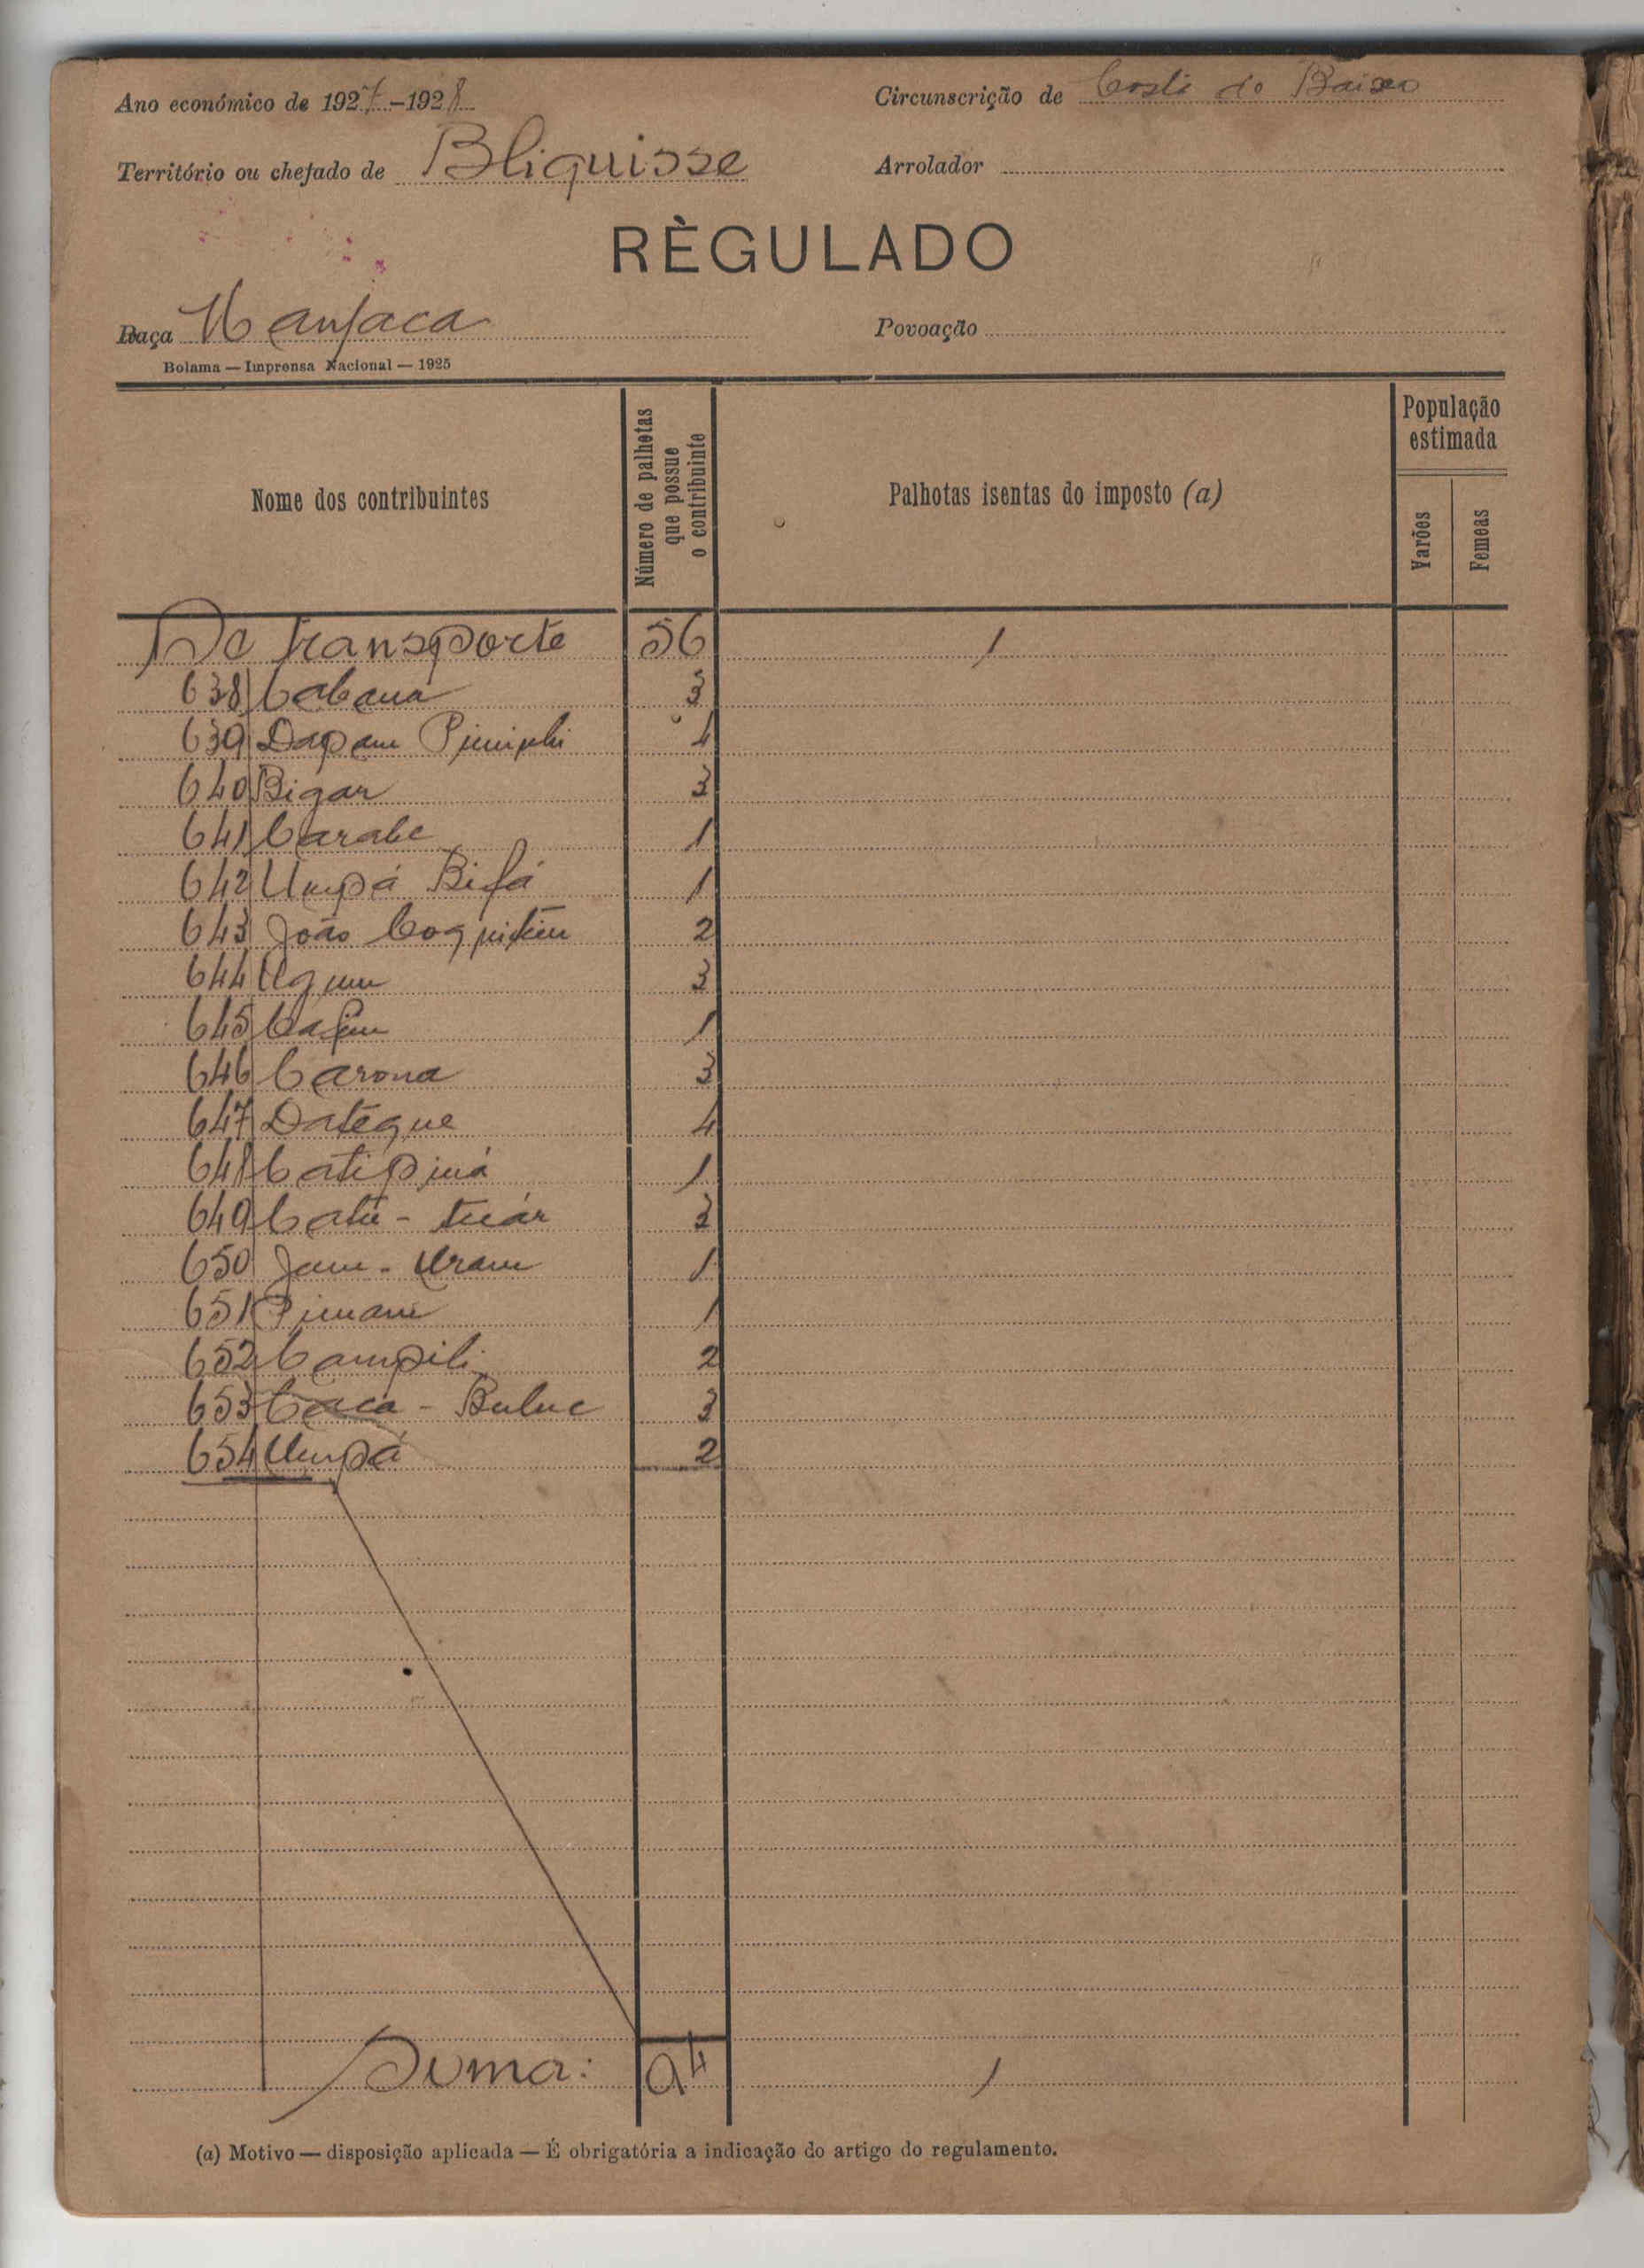 Ano económico de 1927-1928
Circunscrição de Costa de Baixo
Território ou chefado de Bliquisse
Arrolador
RÈGULADO
Raça Manjaca
Povoação
Bolama — Imprensa Nacional — 1925
Nome dos contribuintes
Número de palhotas que possue o contribuinte
Palhotas isentas do imposto (a)
População estimada
Varões
Femeas
De transporte 56 1
638 Cabana 3
639 Dapam 4
640 Bigar 3
641 Carabe 1
642 Umpá Bifá 1
643 João 2
644 3
645 1
646 Carona 3
647 Datéque 4
648 Catipiná 1
649 Catu - tuár 3
650 Jam - Uram 1
651 1
652 Campili 2
653 Caca - Buluc 3
654 Umpá 2
Suma: 94 1
(a) Motivo — disposição aplicada — É obrigatória a indicação do artigo do regulamento.